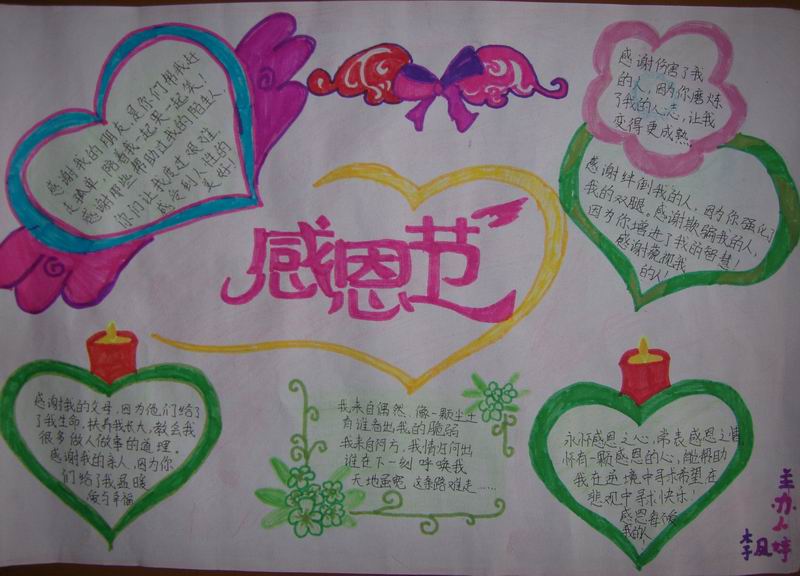 感谢我的朋友,是你们帮我赶
走孤单,陪着我一起哭一起笑!
感谢那些帮助过我的陌生人,
你们让我度过艰难
感受到人性的
美好!
感谢伤害了我
的人,因为你磨炼
了我的心志,让我
变得更成熟。
感谢绊倒我的人,因为你强化了
我的双腿。感谢欺骗我的人,
因为你增进了我的智慧!
感谢藐视我
的人!
感恩节
感谢我的父母,因为他们给了
了我生命,扶养我长大,教会我
很多做人做事的道理。
感谢我的亲人,因为你
们给了我温暖
爱与幸福
我来自偶然、像一颗尘土
有谁看出我的脆弱
我来自何方,我情归何出
谁在下一刻呼唤我
天地虽宽 这条路难走……
永怀感恩之心,常表感恩之情
怀有一颗感恩的心,能帮助
我在逆境中寻求希望在
悲观中寻求快乐!
感恩每个爱
我的人
主办人
李凤婷